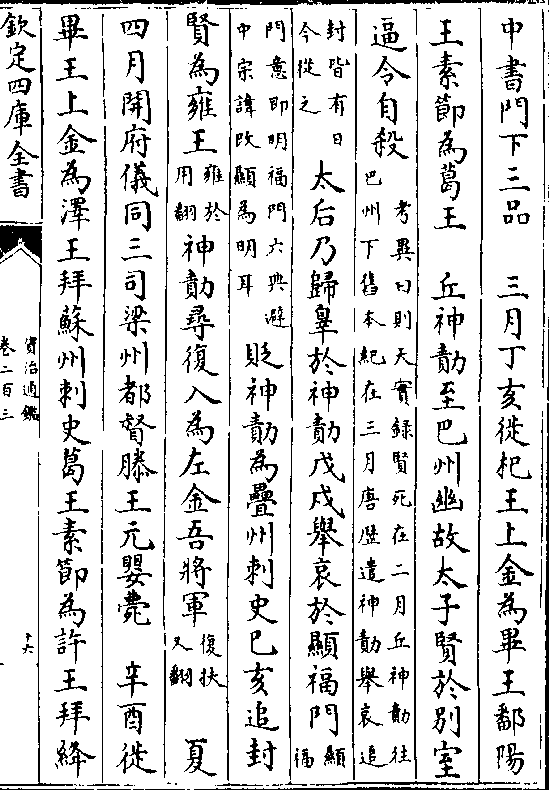 中書門下三品　三月丁亥徙杞王上金為畢王鄱陽
王素節為葛王　丘神勣至巴州幽故太子賢於別室
逼令自殺
考異曰則天實錄賢死在二月丘神勣往
巴州下舊本紀在三月唐歷遣神勣舉哀追
封皆有日
今從之
太后乃歸辠於神勣戊戌舉哀於顯福門
顯
福
門意即明福門六典避
中宗諱改顯為明耳
貶神勣為疊州刺史己亥追封
賢為雍王
雍於
用翻
神勣尋復入為左金吾將軍
復扶
又翻
夏
四月開府儀同三司梁州都督滕王元嬰薨　辛酉徙
畢王上金為澤王拜蘇州刺史葛王素節為許王拜絳
欽定四庫全書
資治通鑑
卷二百三
十六